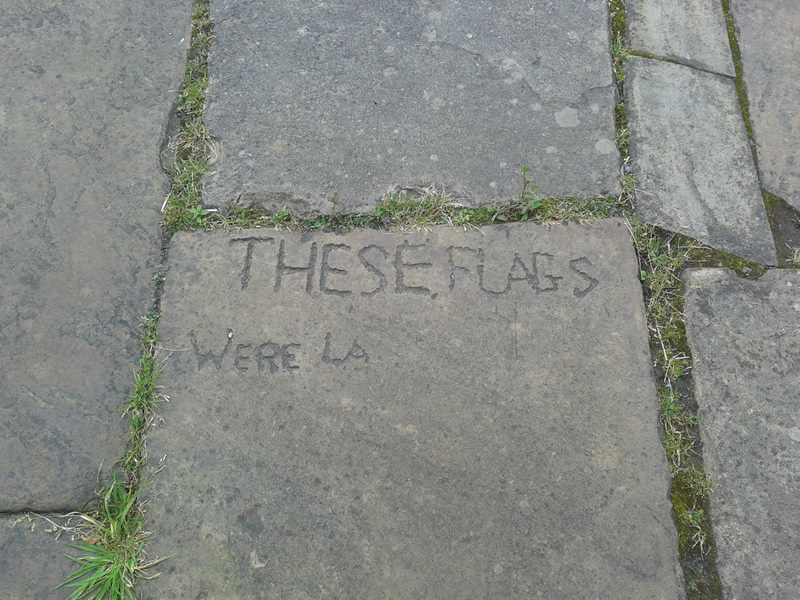 THESE FLAGS
WERE LA